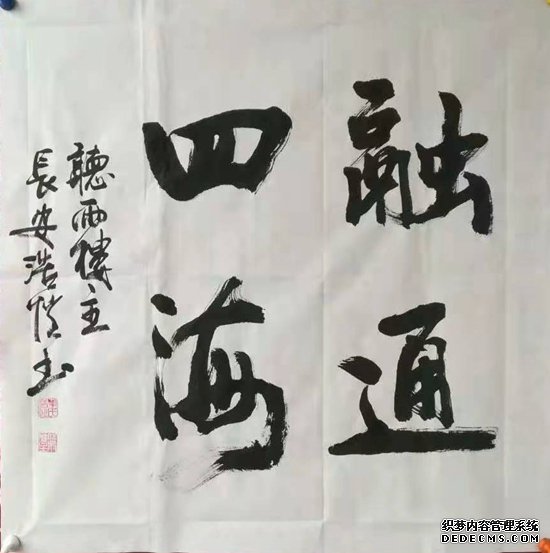 融通
四海
聽雨樓主
長安浩愷書
织梦内容管理系统
DEDECMS.COM